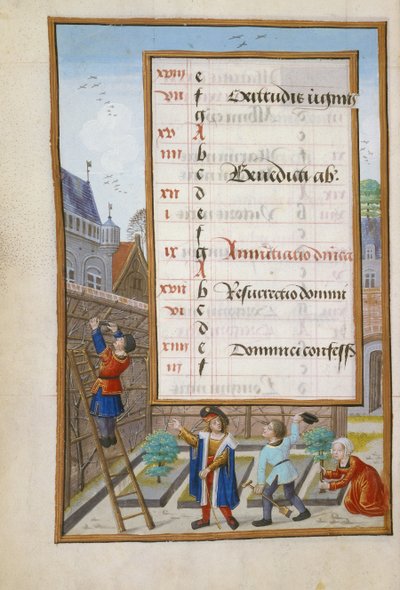 xviij e
vij f Gertrudis v'ginis
g
xv A
iiij b
c Benedicti ab'.
xij d
i e
f
ix g Annu'tiatio d'nica
A
xvij b Resurrectio domini
vi c
d
xiiij e Dominici confess'
iij f